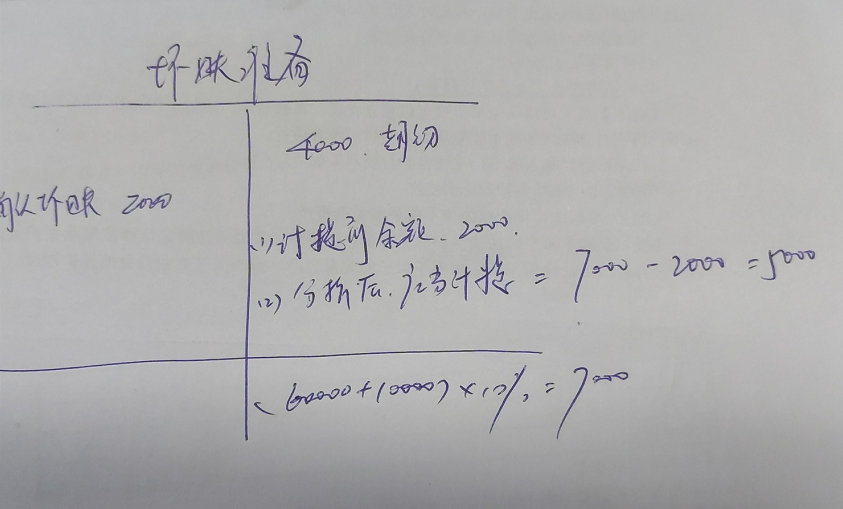 坏账准备
4000. 期初
确认坏账 2000
(1) 计提前余额. 2000.
(2) 分析后. 应当计提 = 7000 - 2000 = 5000
(60000+10000) × 10% = 7000